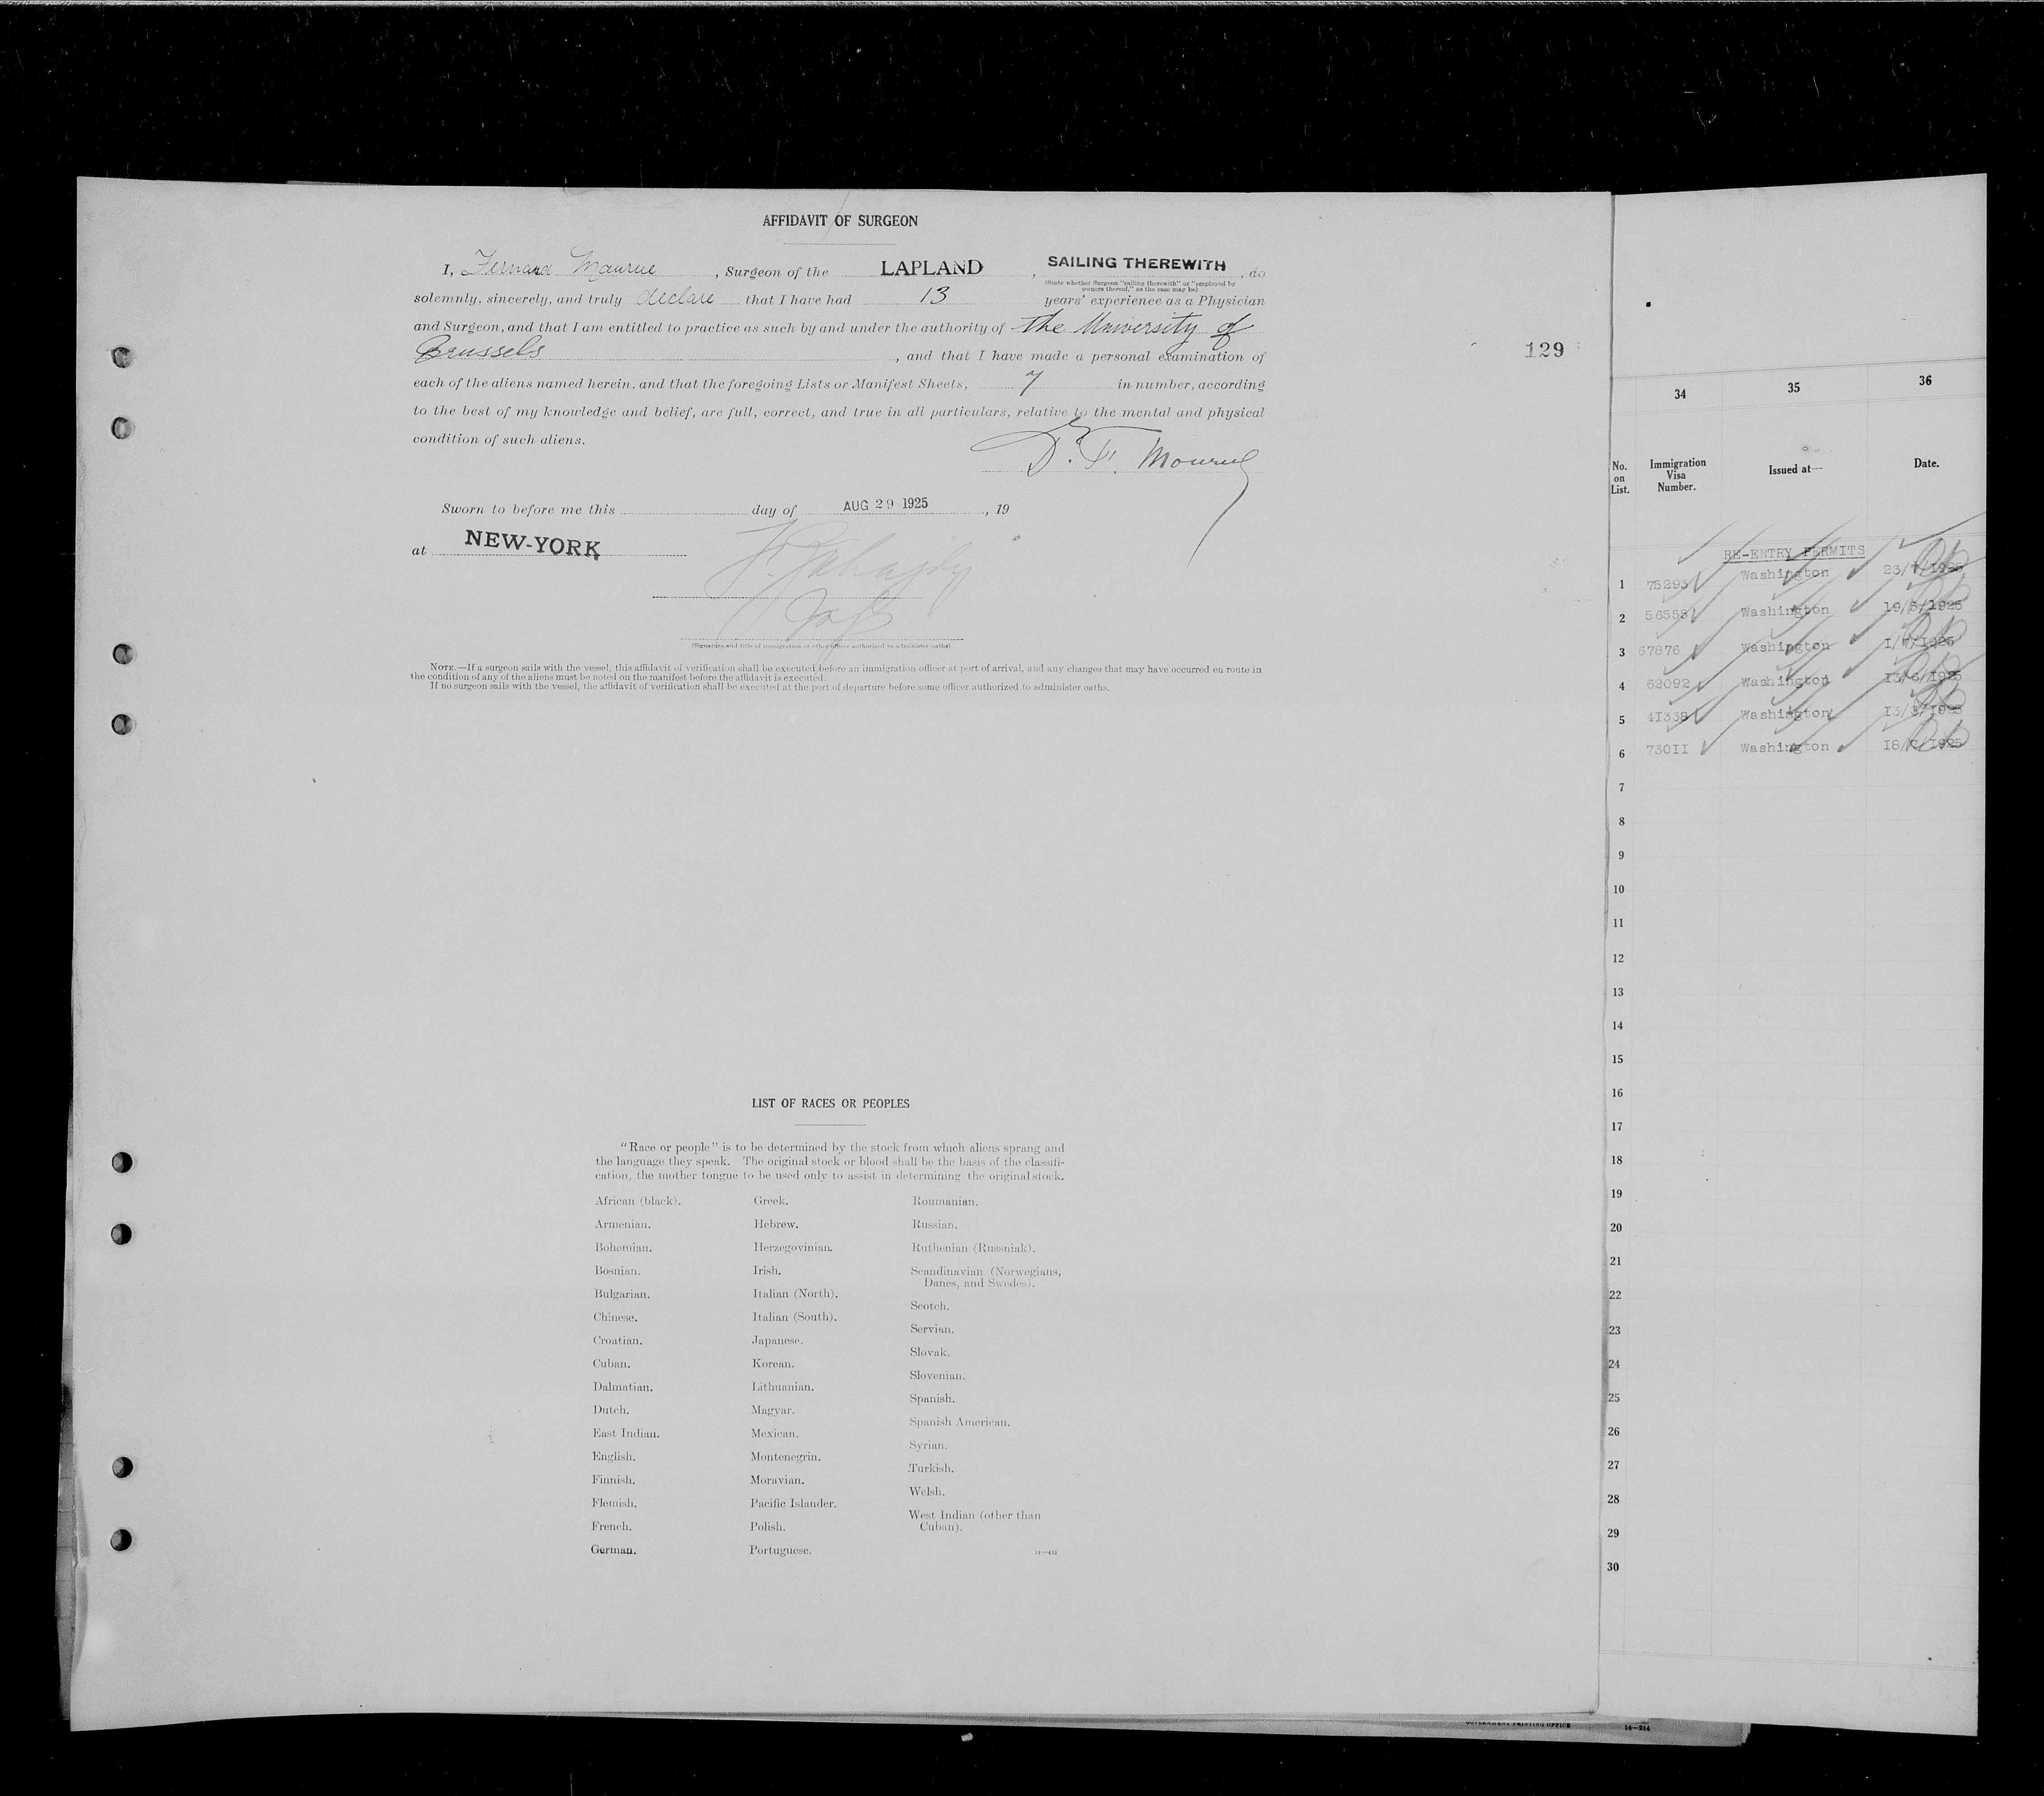 AFFIDAVIT OF SURGEON
I, Fernand , Surgeon of the LAPLAND , SAILING THEREWITH , do
(State whether Surgeon "sailing therewith" or "employed by
owners thereof," as the case may be)
solemnly, sincerely, and truly declare that I have had 13 years' experience as a Physician
and Surgeon, and that I am entitled to practice as such by and under the authority of the University of
Brussels , and that I have made a personal examination of
each of the aliens named herein, and that the foregoing Lists or Manifest Sheets, 7 in number, according
to the best of my knowledge and belief, are full, correct, and true in all particulars, relative to the mental and physical
condition of such aliens.
Dr. F.
Sworn to before me this day of AUG 29 1925 , 19
at NEW-YORK
(Signature and title of immigration or other officer authorized to administer oaths)
NOTE.—If a surgeon sails with the vessel, this affidavit of verification shall be executed before an immigration officer at port of arrival, and any changes that may have occurred en route in
the condition of any of the aliens must be noted on the manifest before the affidavit is executed.
If no surgeon sails with the vessel, the affidavit of verification shall be executed at the port of departure before some officer authorized to administer oaths.
129
LIST OF RACES OR PEOPLES
"Race or people" is to be determined by the stock from which aliens sprang and
the language they speak. The original stock or blood shall be the basis of the classifi-
cation, the mother tongue to be used only to assist in determining the original stock.
African (black).
Armenian.
Bohemian.
Bosnian.
Bulgarian.
Chinese.
Croatian.
Cuban.
Dalmatian.
Dutch.
East Indian.
English.
Finnish.
Flemish.
French.
German.
Greek.
Hebrew.
Herzegovinian.
Irish.
Italian (North).
Italian (South).
Japanese.
Korean.
Lithuanian.
Magyar.
Mexican.
Montenegrin.
Moravian.
Pacific Islander.
Polish.
Portuguese.
Roumanian.
Russian.
Ruthenian (Russniak).
Scandinavian (Norwegians,
Danes, and Swedes).
Scotch.
Servian.
Slovak.
Slovenian.
Spanish.
Spanish American.
Syrian.
Turkish.
Welsh.
West Indian (other than
Cuban).
34 35 36
No. on List. Immigration Visa Number. Issued at— Date.
RE-ENTRY PERMITS
1 75293 Washington 23/7/1925
2 56555 Washington 19/5/1925
3 67876 Washington 1/7/1925
4 62092 Washington 13/6/1925
5 41338 Washington 13/3/1925
6 73011 Washington 18/7/1925
7
8
9
10
11
12
13
14
15
16
17
18
19
20
21
22
23
24
25
26
27
28
29
30
GOVERNMENT PRINTING OFFICE 14—214